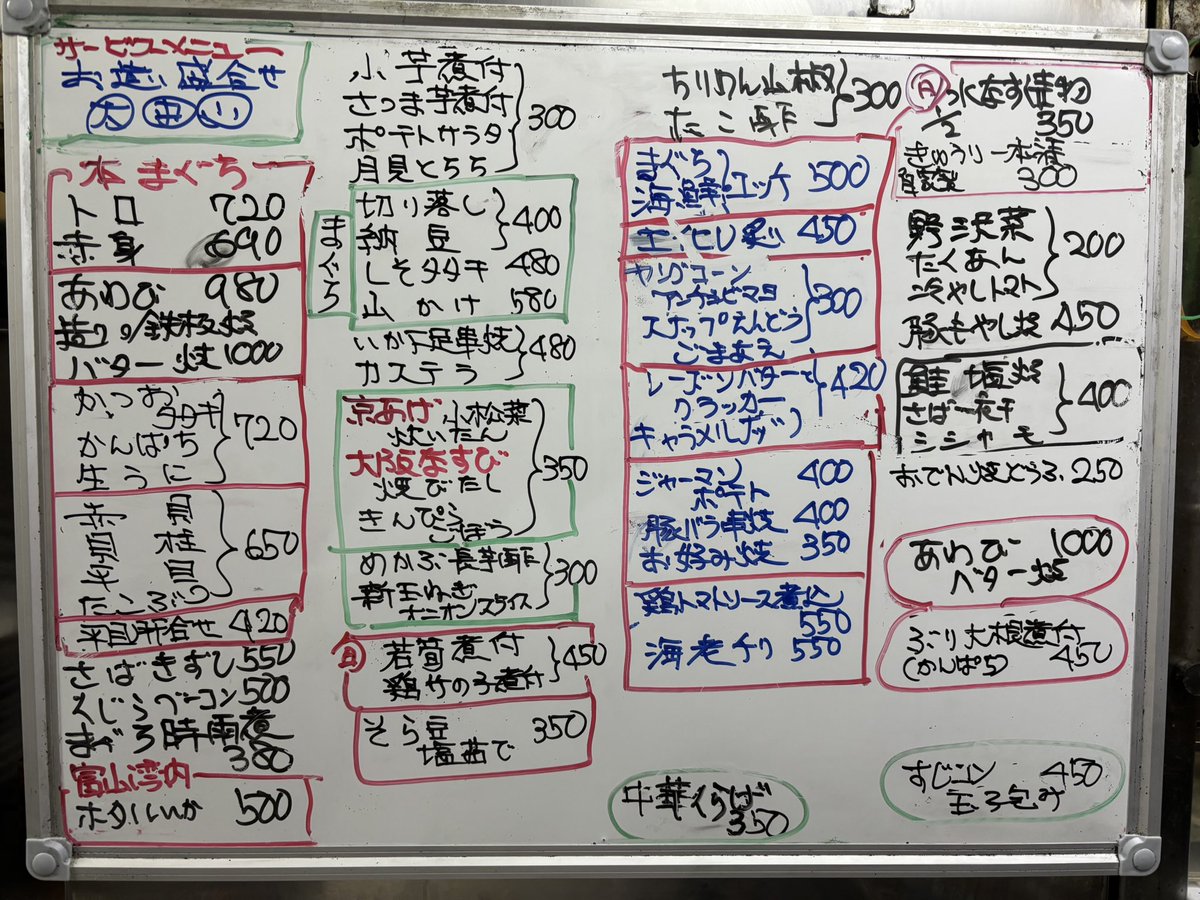 サービスメニュー
お造り盛合せ
大 中 小
本まぐろ
トロ 720
赤身 690
あわび 980
造り/鉄板焼
バター焼 1000
かつおタタキ
かんぱち 720
生うに
赤貝
貝柱 650
平貝
たこぶつ
平目昆布合せ 420
さばきずし 550
くじらベーコン 500
まぐろ時雨煮
380
富山湾内
ホタルいか 500
小芋煮付
さつま芋煮付 300
ポテトサラダ
月見とろろ
まぐろ
切り落し 400
納豆
しそタタキ 480
山かけ 580
いか下足串焼 480
カステラ
京あげ 小松菜
炊いたん
大阪なすび 350
焼びたし
きんぴら
ごぼう
めかぶ長芋酢 300
新玉ねぎ
オニオンスライス
若筍煮付 450
鶏竹の子煮付
そら豆 350
塩茹で
ちりめん山椒 300
たこ酢
まぐろ 500
海鮮ユッケ
エイヒレ炙 450
ヤングコーン
アンチョビマヨ 300
スナップえんどう
ごまあえ
レーズンバターで 420
クラッカー
キャラメルナッツ
ジャーマン 400
ポテト
豚バラ串焼 400
お好み焼 350
鶏トマトソース煮込
550
海老チリ 550
中華くらげ
350
水なす漬物
1/2 350
きゅうり一本漬
自家製 300
野沢菜
たくあん 200
冷やしトマト
豚もやし炒 450
鮭塩焼
さば一夜干 400
シシャモ
おでん焼どうふ 250
あわび 1000
バター焼
ぶり大根煮付
(かんぱち) 450
すじコン 450
玉子包み